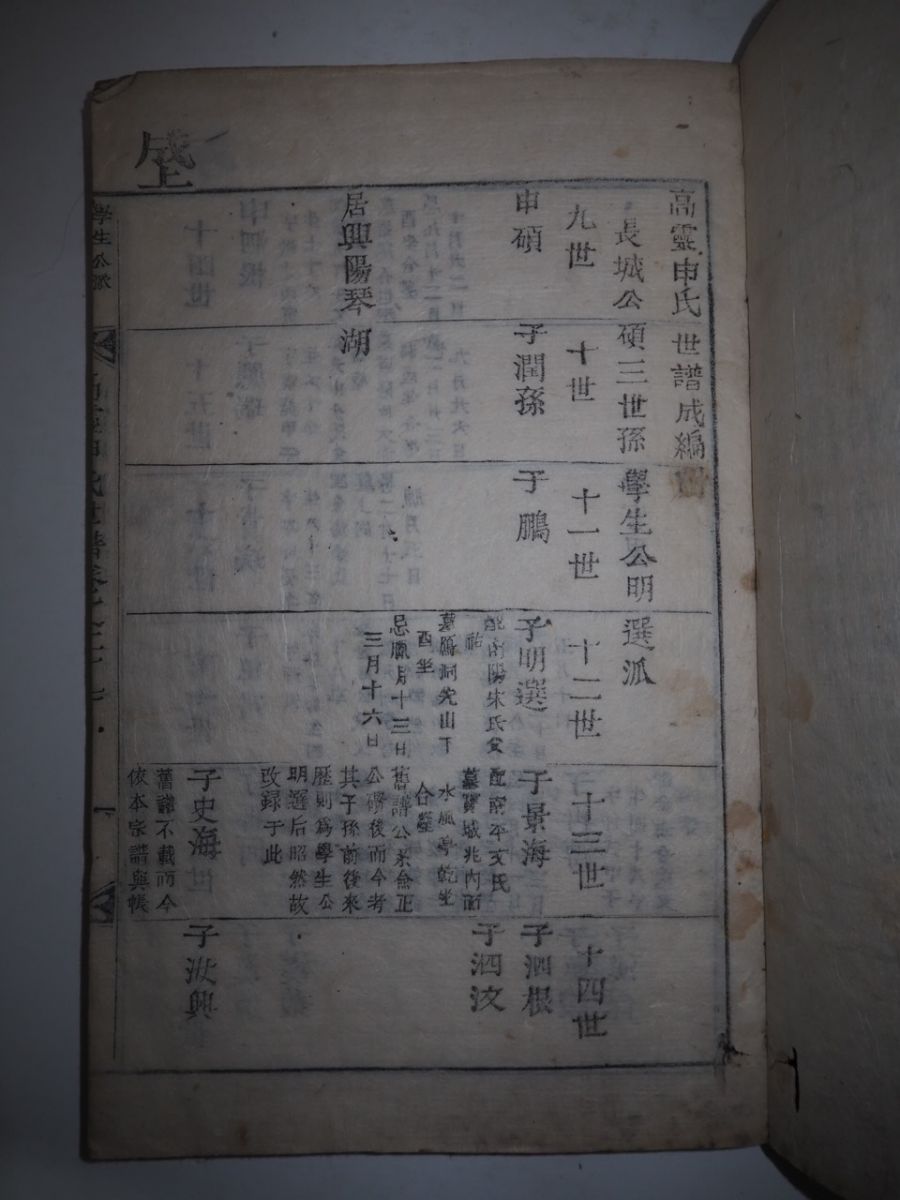 高靈申氏世譜成編
長城公碩三世孫學生公明選派
九世
十世
十一世
十二世
十三世
十四世
申碩
居興陽琴湖
子潤孫
子鵬
子明選
配南陽宋氏父
祐
墓鵬洞先山下
酉坐
忌臘月十三日
三月十六日
子景海
配南平文氏
墓寶城兆內面
水風亭乾坐
合塋
舊譜公系僉正
公碩後而今考
其子孫前後來
歷則為學生公
明選后昭然故
改錄于此
子史海
舊譜不載而今
依本宗譜與帳
子泗根
子泗汶
子汝興
學生公派